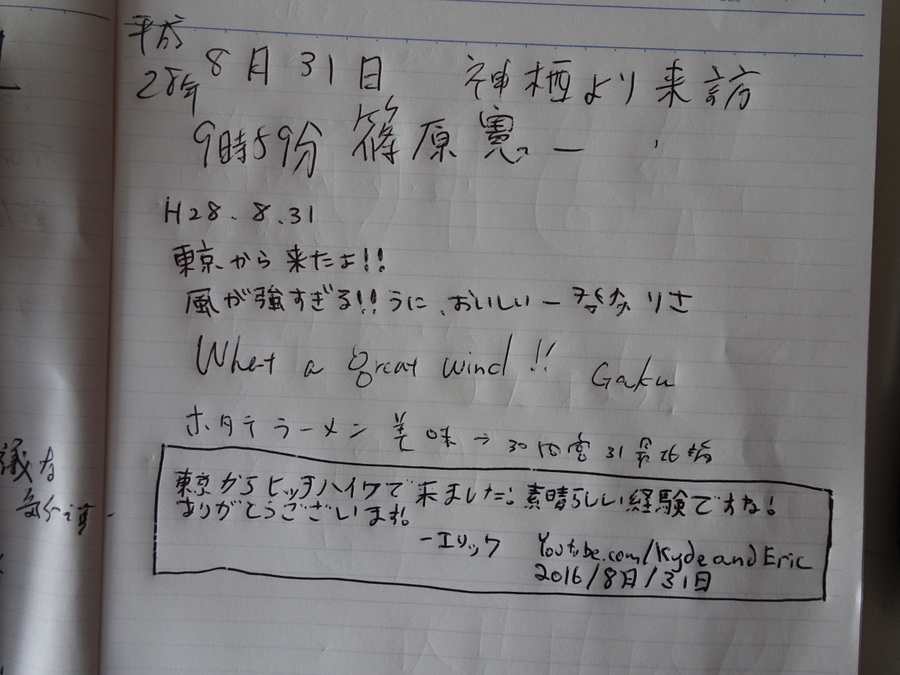 平成
28年 8月31日 神栖より来訪
9時59分 篠原寛一
H28.8.31
東京から来たよ!!
風が強すぎる!!うに、おいしいー
What a great wind!! Gaku
ホタテラーメン 美味→
東京からヒッチハイクで来ました!素晴らしい経験ですね!
ありがとうございます!
-エリック Youtube.com/KydeandEric
2016/8月/31日
議な